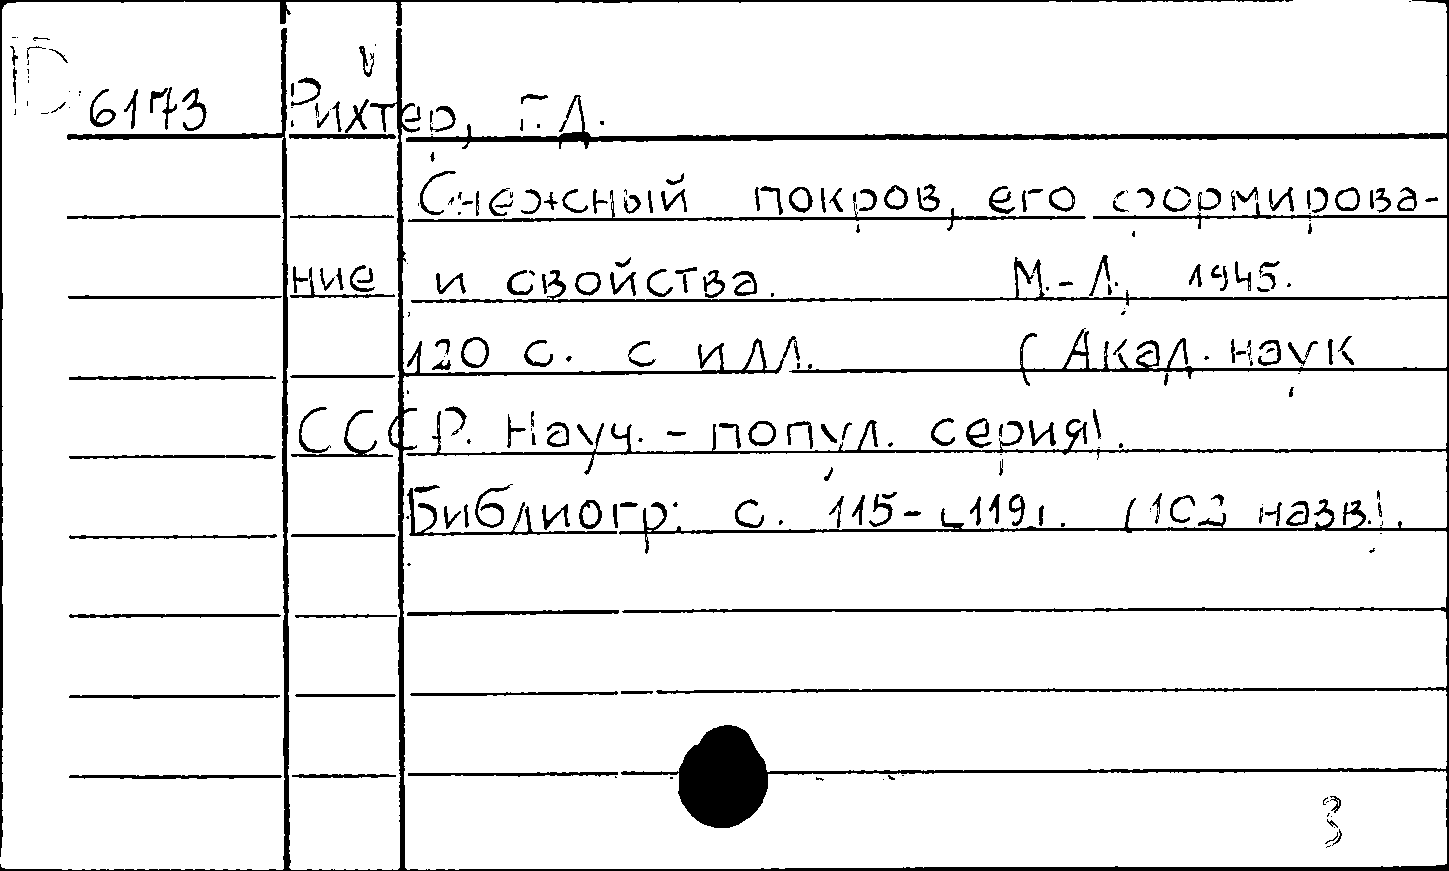 D 6173 Рихтер, Г.Д.
Снежный покров, его формирова-
ние и свойства. М.-Л., 1945.
120 с. с илл. (Акад. наук
СССР. Науч.-попул. серия).
Библиогр: с. 115-[119]. (102 назв.).
3